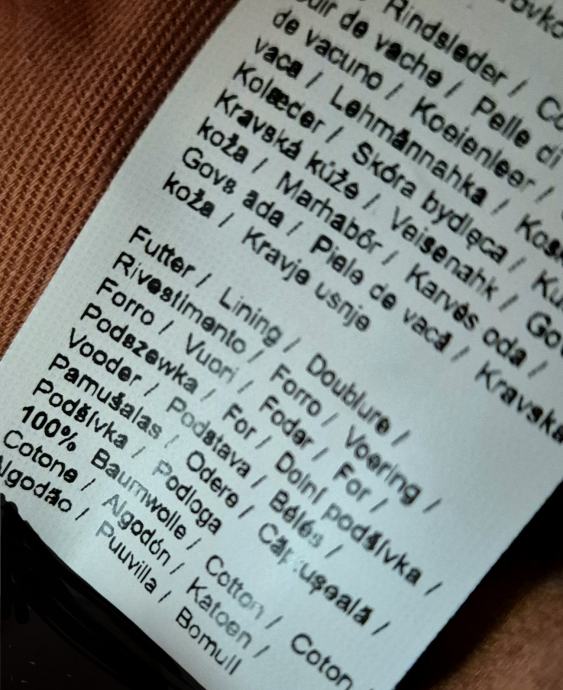 Rindsleder /
de vache / Pelle di
de vacuno / Koeienleer /
vaca / Lehmännahka /
Kolæder / Skóra bydlęca /
Kravská kůže / Veisenahk /
koža / Marhabőr / Karvės oda /
Govs āda / Piele de vacă / Kravska
koža / Kravje usnje
Futter / Lining / Doublure /
Rivestimento / Forro / Voering /
Forro / Vuori / Foder / For /
Podszewka / For / Dolní podšívka /
Vooder / Podstava / Bélés /
Pamušalas / Odere / Căptușeală /
Podšívka / Podloga
100% Baumwolle / Cotton / Coton
Cotone / Algodón / Katoen /
Algodão / Puuvilla / Bomull